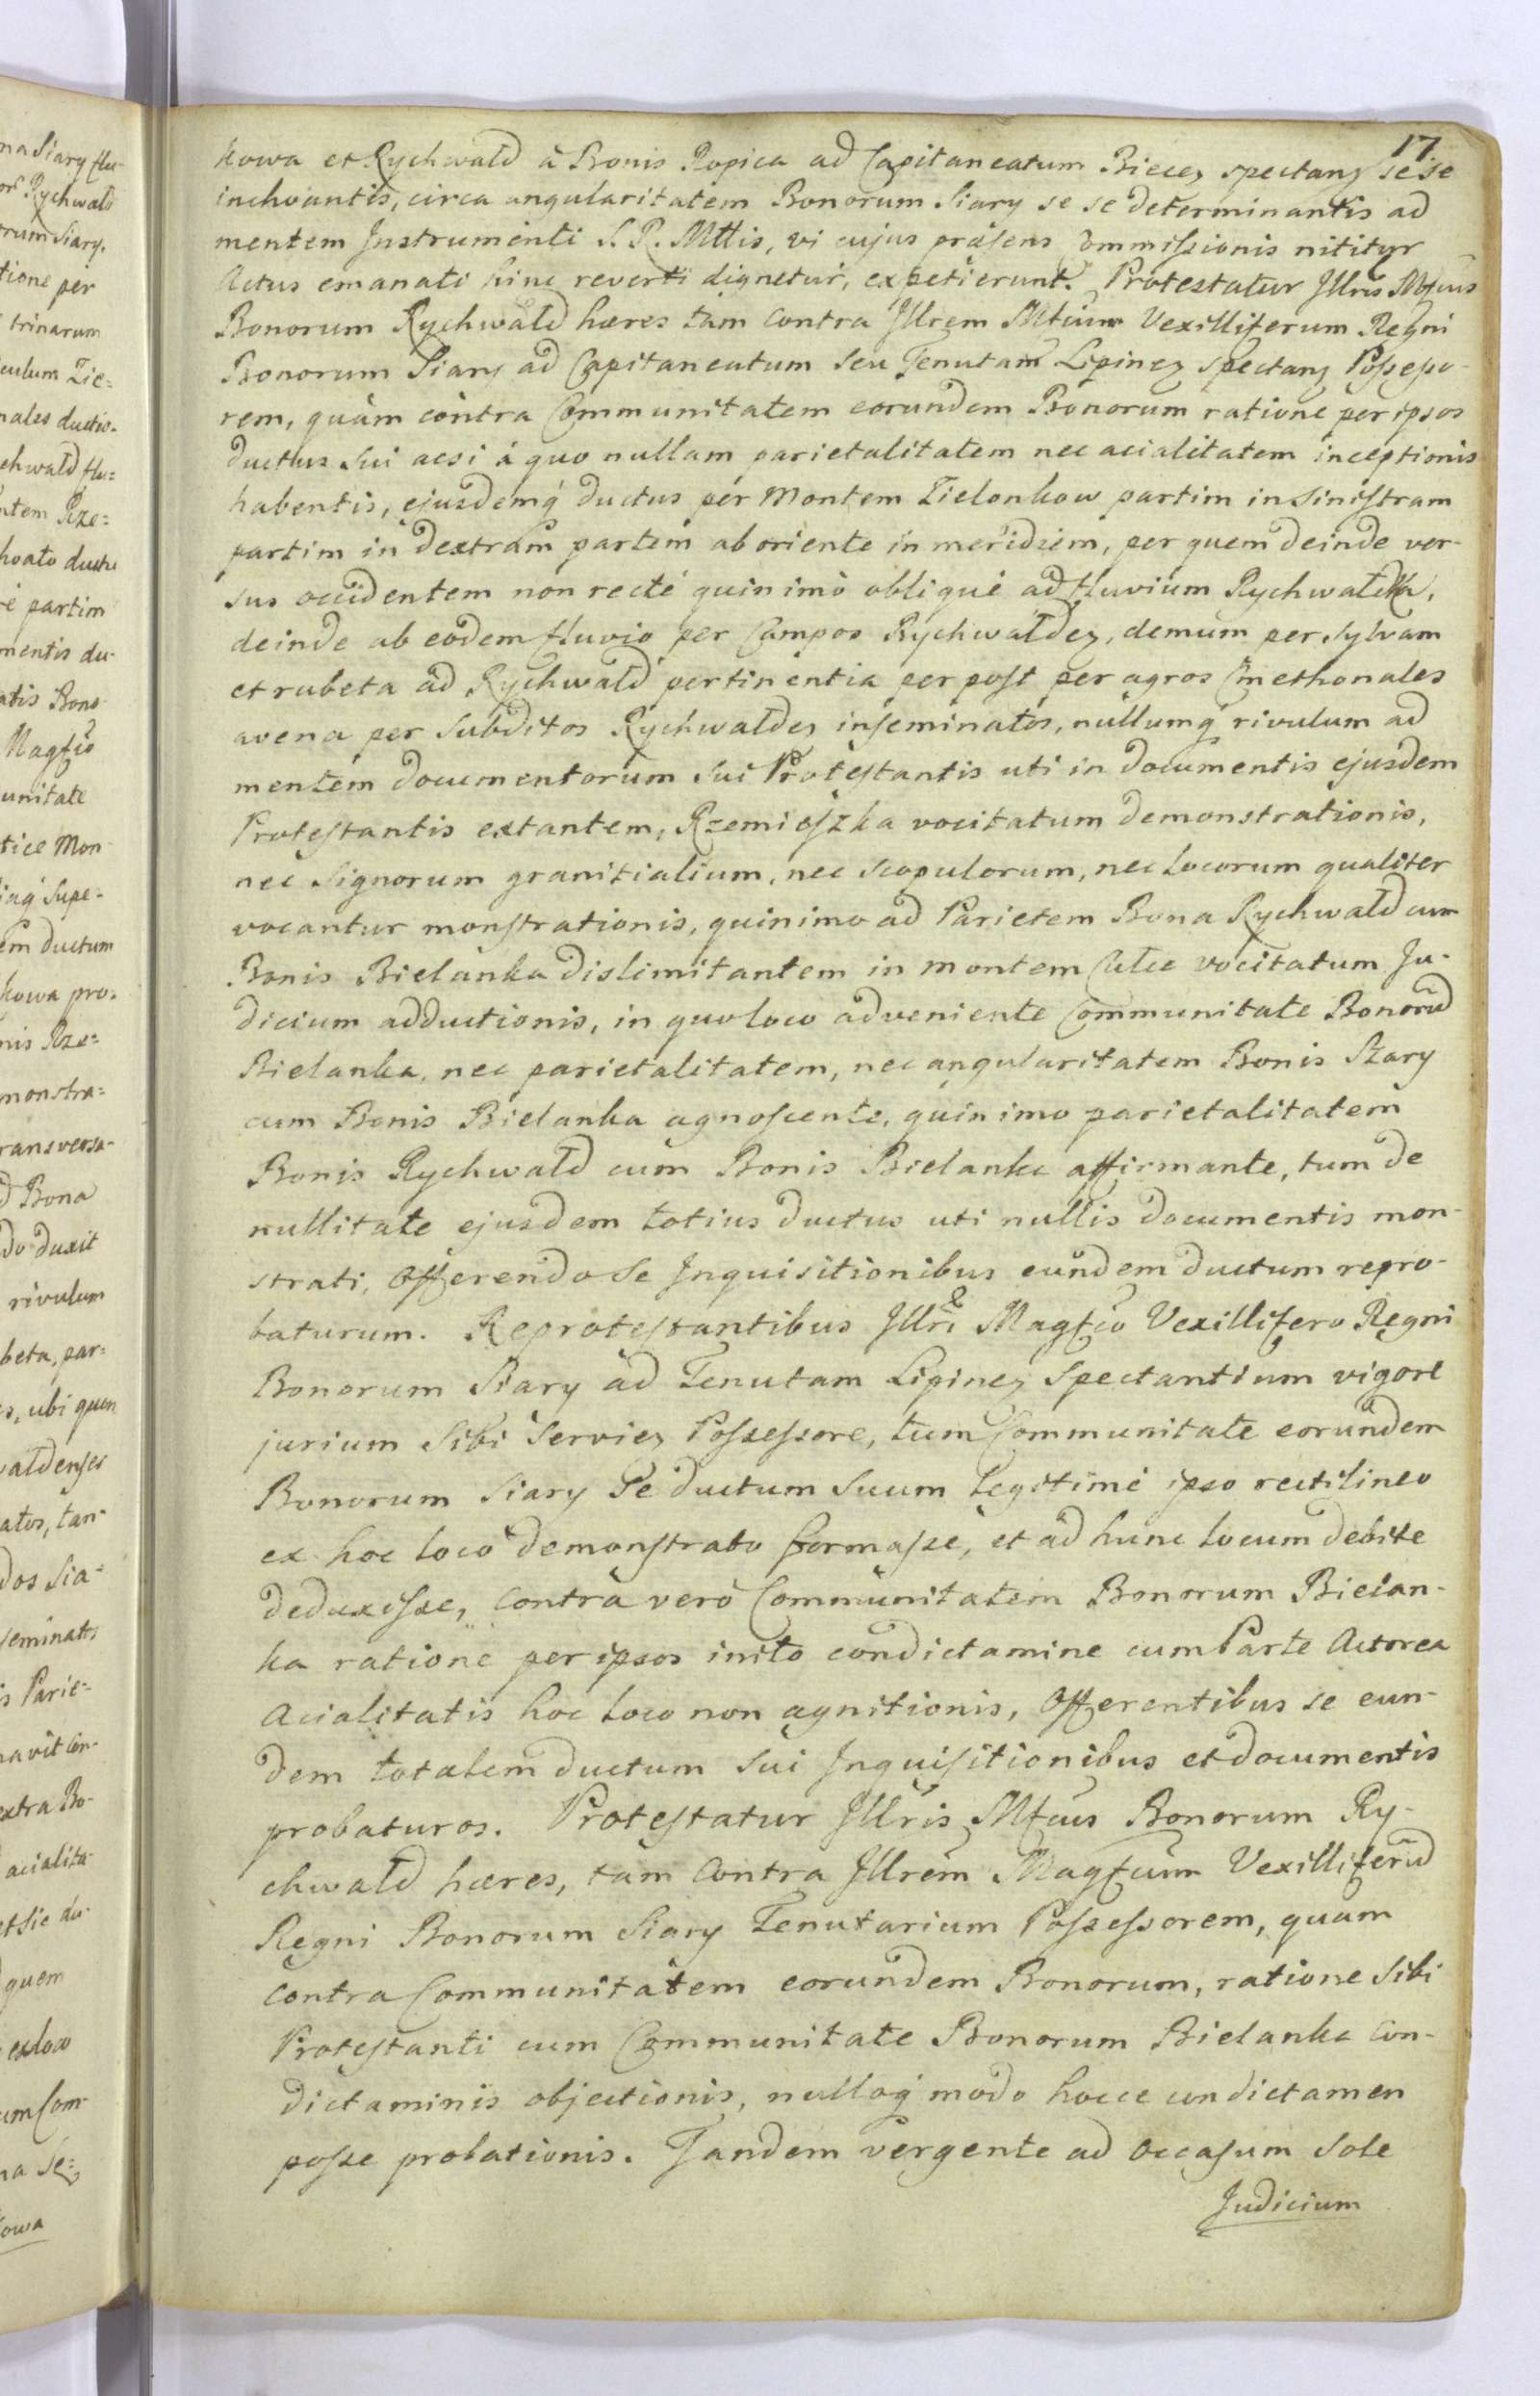 17
kowa et Rychwałd à Bonis Ropica ad Capitaneatum Biecez spectanz sese
inchoantis, circa angularitatem Bonorum Siary se se determinantis ad
mentem Instrumenti S. R. Mttis, vi cujus präsens Commissionis nititur
Actus emanati hinc reverti dignetur, expetierunt. Protestatur Illris Mfcus
Bonorum Rychwałd hæres tam contra Illrem Mfcum Vexilliferum Regni
Bonorum Siary ad Capitaneatum seu Tenutam Lipinez spectanz Possesso-
rem, quàm contra Communitatem eorundem Bonorum ratione per ipsos
ductus sui acsi à quo nullam parietalitatem nec acialitatem inceptionis
habentis, ejusdemq́ ductus per Montem Zielonkow partim in sinistram
partim in dextram partem ab oriente in meridiem, per quem deinde ver-
sus occidentem non recté quinimò obliqué ad fluvium Rychwałdka,
deinde ab eodem fluvio per Campos Rychwałdez, demum per sylvam
et rubeta ad Rychwałd pertinentia per post per agros Cmethonales
avena per subditos Rychwałdez inseminatos, nullumq́ rivulum ad
mentem documentorum sui Protestantis uti in documentis ejusdem
Protestantis extantem, Rzemioszka vocitatum demonstrationis,
nec signorum granitialium, nec scopulorum, nec locorum qualiter
vocantur monstrationis, quinimo ad Parietem Bona Rychwałd cum
Bonis Bielanka dislimitantem in montem vocitatum Ju-
dicium adductionis, in quo loco adveniente Communitate Bonorũ
Bielanka, nec parietalitatem, nec angularitatem Bonis Szary
cum Bonis Bielanka agnoscente, quinimo parietalitatem
Bonis Rychwałd cum Bonis Bielanka affirmante, tum de
nullitate ejusdem totius ductus uti nullis documentis mon-
strati, Offerendo se Inquisitionibus eundem ductum repro-
baturum. Reprotestantibus Illri & Magfco Vexillifero Regni
Bonorum Siary ad Tenutam Lipinez Spectantium vigore
jurium sibi serviez Possessore, tum Communitate eorundem
Bonorum Siary se ductum suum legitimé ipso rectilineo
ex hoc loco demonstrato formasse, et ad hunc locum debite
deduxisse, contra verò Communitatem Bonorum Bielan-
ka ratione per ipsos inito condictamine cum Parte Actorea
Acialitatis hoc loco non agnitionis, Offerentibus se eun-
dem totalem ductum sui Inquisitionibus et documentis
probaturos. Protestatur Illris Mfcus Bonorum Ry-
chwałd hæres, tam contra Illrem Magfcum Vexilliferũ
Regni Bonorum Siary Tenutarium Possessorem, quam
contra Communitatem eorundem Bonorum, ratione sibi
Protestanti cum Communitate Bonorum Bielanka con-
dictaminis objectionis, nulloq́ modo hocce condictamen
posse probationis. Tandem vergente ad Occasum Sole
Judicium